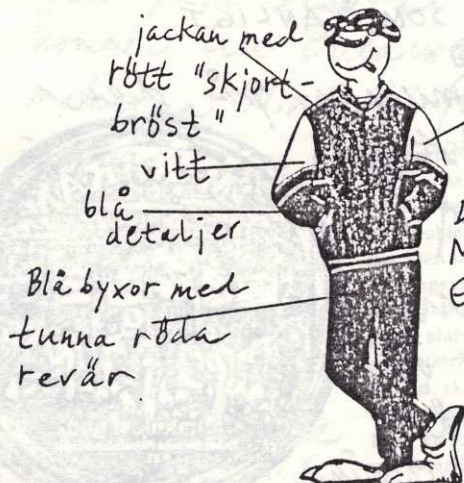 jackan med
rött "skjort-
bröst"
vitt
blå
detaljer
Blå byxor med
tunna röda
revär